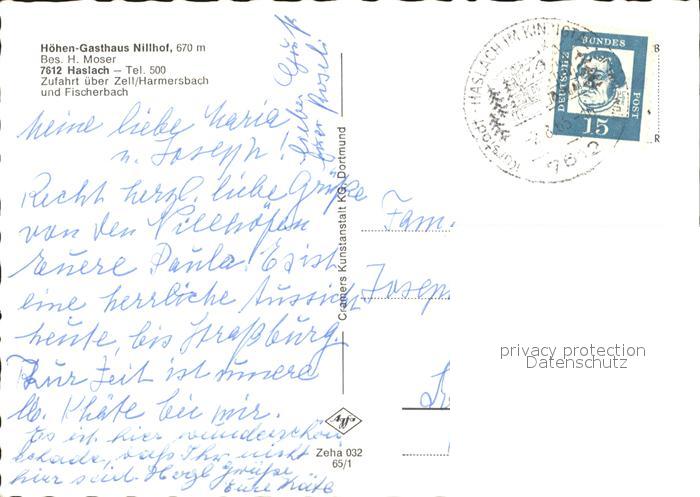 Höhen-Gasthaus Nillhof, 670 m
Bes. H. Moser
7612 Haslach — Tel. 500
Zufahrt über Zell/Harmersbach
und Fischerbach
Meine liebe Maria
u. Joseph!
Recht herzl. liebe Grüße
von den Nillhöfen
Euere Paula! Es ist
eine herrliche Aussicht
heute, bis Straßburg.
Zur Zeit ist unsere
lb. Käte bei mir.
Es ist hier wunderschön
schade, daß Ihr nicht
hier seid. Herzl Grüße
Eure Käte
Gruß
Cramers Kunstanstalt KG. Dortmund
Zeha 032
65/1
HASLACH IM KINZIGTAL
7612
DEUTSCHE BUNDESPOST
15
B
R
Fam.
Joseph
privacy protection
Datenschutz